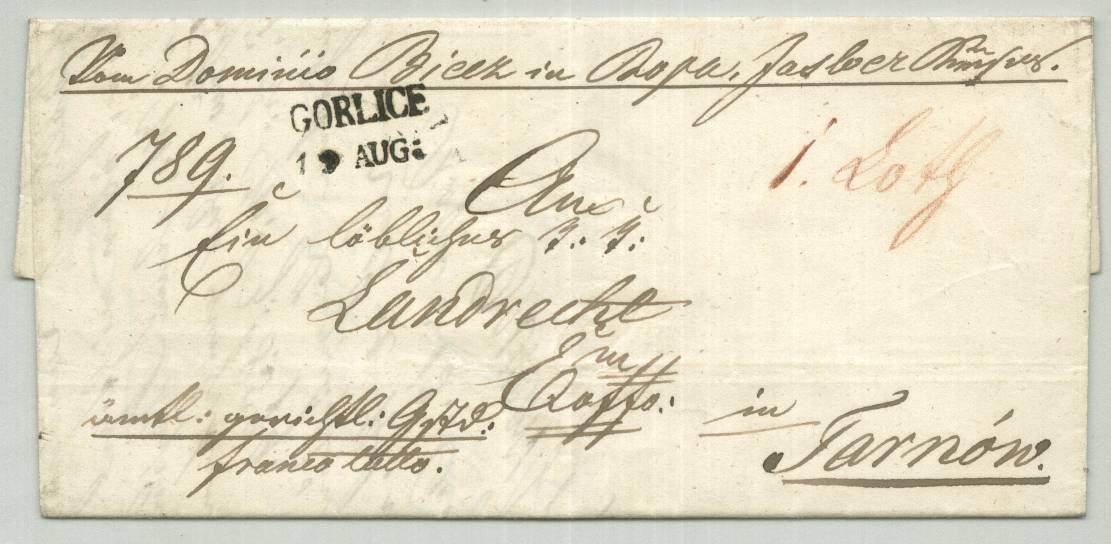 Vom Dominio Biecz in Ropa, Jasloer Kreises.
GORLICE
19 AUG:
789.
1. Loth
An
Ein löbliches k: k:
Landrecht
in
Tarnów.
ämtl: gerichtl: Ggstd:
franco tutto.